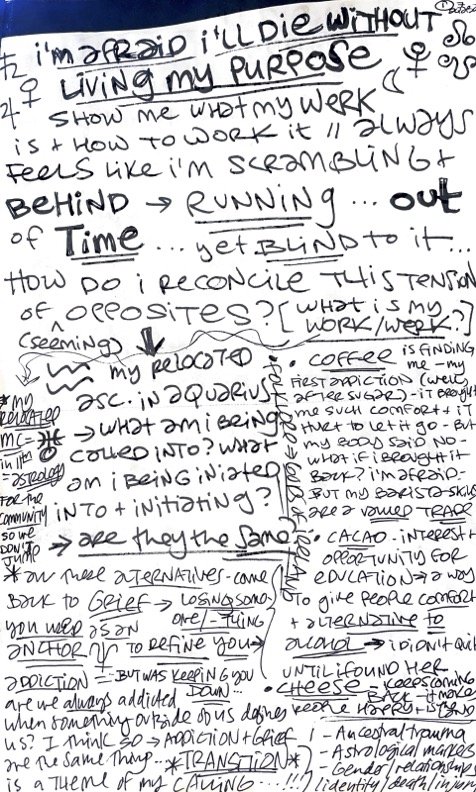 i'm afraid i'll die without
living my purpose
show me what my werk
is + how to work it // always
feels like i'm scrambling +
behind → running ... out
of time ... yet blind to it ...
how do i reconcile this tension
of opposites? [what is my
work/werk?]
(seeming)
my relocated
asc. in aquarius
→ what am i being
called into? what
am i being iniated
into + initiating?
→ are they the same
*my
relocated
mc-♓
in 11th
=astrology
for the
community
so we
don't
jump
folklore → gods of ireland
• coffee is finding
me - my
first addiction (well,
after sugar) - it brought
me such comfort + it
hurt to let it go - but
my body said no -
what if i brought it
back? i'm afraid.
but my barista skills
are a valued trade
• cacao - interest +
opportunity for
education → a way
to give people comfort
+ alternative to
alcohol → i didn't quit
until i found her
• cheese - keeps coming
back - it makes
people happy + is
*all these alternatives - came
back to grief → losing some-
one/-thing
you used as an
anchor to refine you →
addiction = but was keeping you
down...
are we always addicted
when something outside of us defines
us? I think so → addiction + grief
are the same thing... *transition*
is a theme of my calling ...!!!
- Ancestral trauma
- Astrological markers
- Gender/relationship
/identity/death/injury